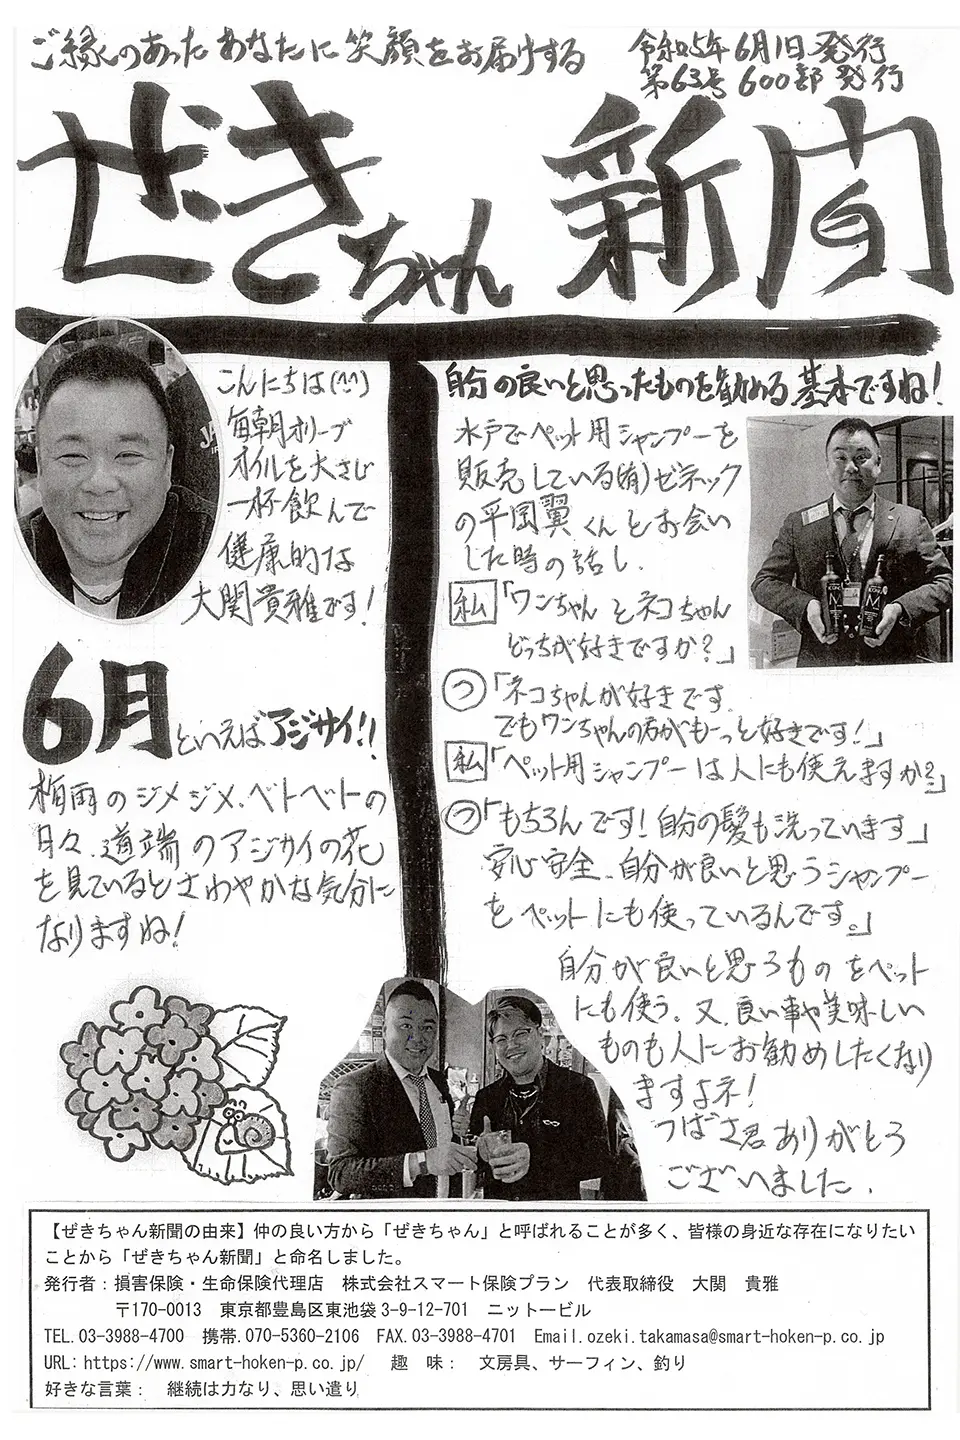 ご縁のあったあなたに笑顔をお届けする
令和5年6月1日発行
第63号 600部発行
ぜきちゃん新聞
こんにちは(^^)
毎朝オリーブ
オイルを大さじ
一杯飲んで
健康的な
大関貴雅です!
6月といえばアジサイ!!
梅雨のジメジメ、ベトベトの
日々、道端のアジサイの花
を見ているとさわやかな気分に
なりますね!
自分の良いと思ったものを勧める基本ですね!
水戸でペット用シャンプーを
販売している(有)ゼネック
の平岡翼くんとお会い
した時の話し.
私「ワンちゃんとネコちゃん
どっちが好きですか?」
つ「ネコちゃんが好きです.
でもワンちゃんの方がもーっと好きです!」
私「ペット用シャンプーは人にも使えますか?」
つ「もちろんです!自分の髪も洗っています」
安心安全、自分が良いと思うシャンプー
をペットにも使っているんです。」
自分が良いと思うものをペット
にも使う。又、良い事や美味しい
ものも人にお勧めしたくなり
ますよネ!
つばさ君ありがとう
ございました.
【ぜきちゃん新聞の由来】仲の良い方から「ぜきちゃん」と呼ばれることが多く、皆様の身近な存在になりたい
ことから「ぜきちゃん新聞」と命名しました。
発行者:損害保険・生命保険代理店 株式会社スマート保険プラン 代表取締役 大関 貴雅
〒170-0013 東京都豊島区東池袋3-9-12-701 ニットービル
TEL.03-3988-4700 携帯.070-5360-2106 FAX.03-3988-4701 Email.ozeki.takamasa@smart-hoken-p.co.jp
URL:https://www.smart-hoken-p.co.jp/ 趣 味: 文房具、サーフィン、釣り
好きな言葉: 継続は力なり、思い遣り